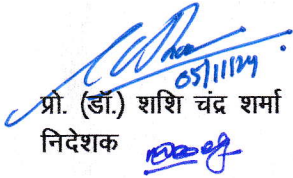 05/11/24
प्रो. (डॉ.) शशि चंद्र शर्मा
निदेशक